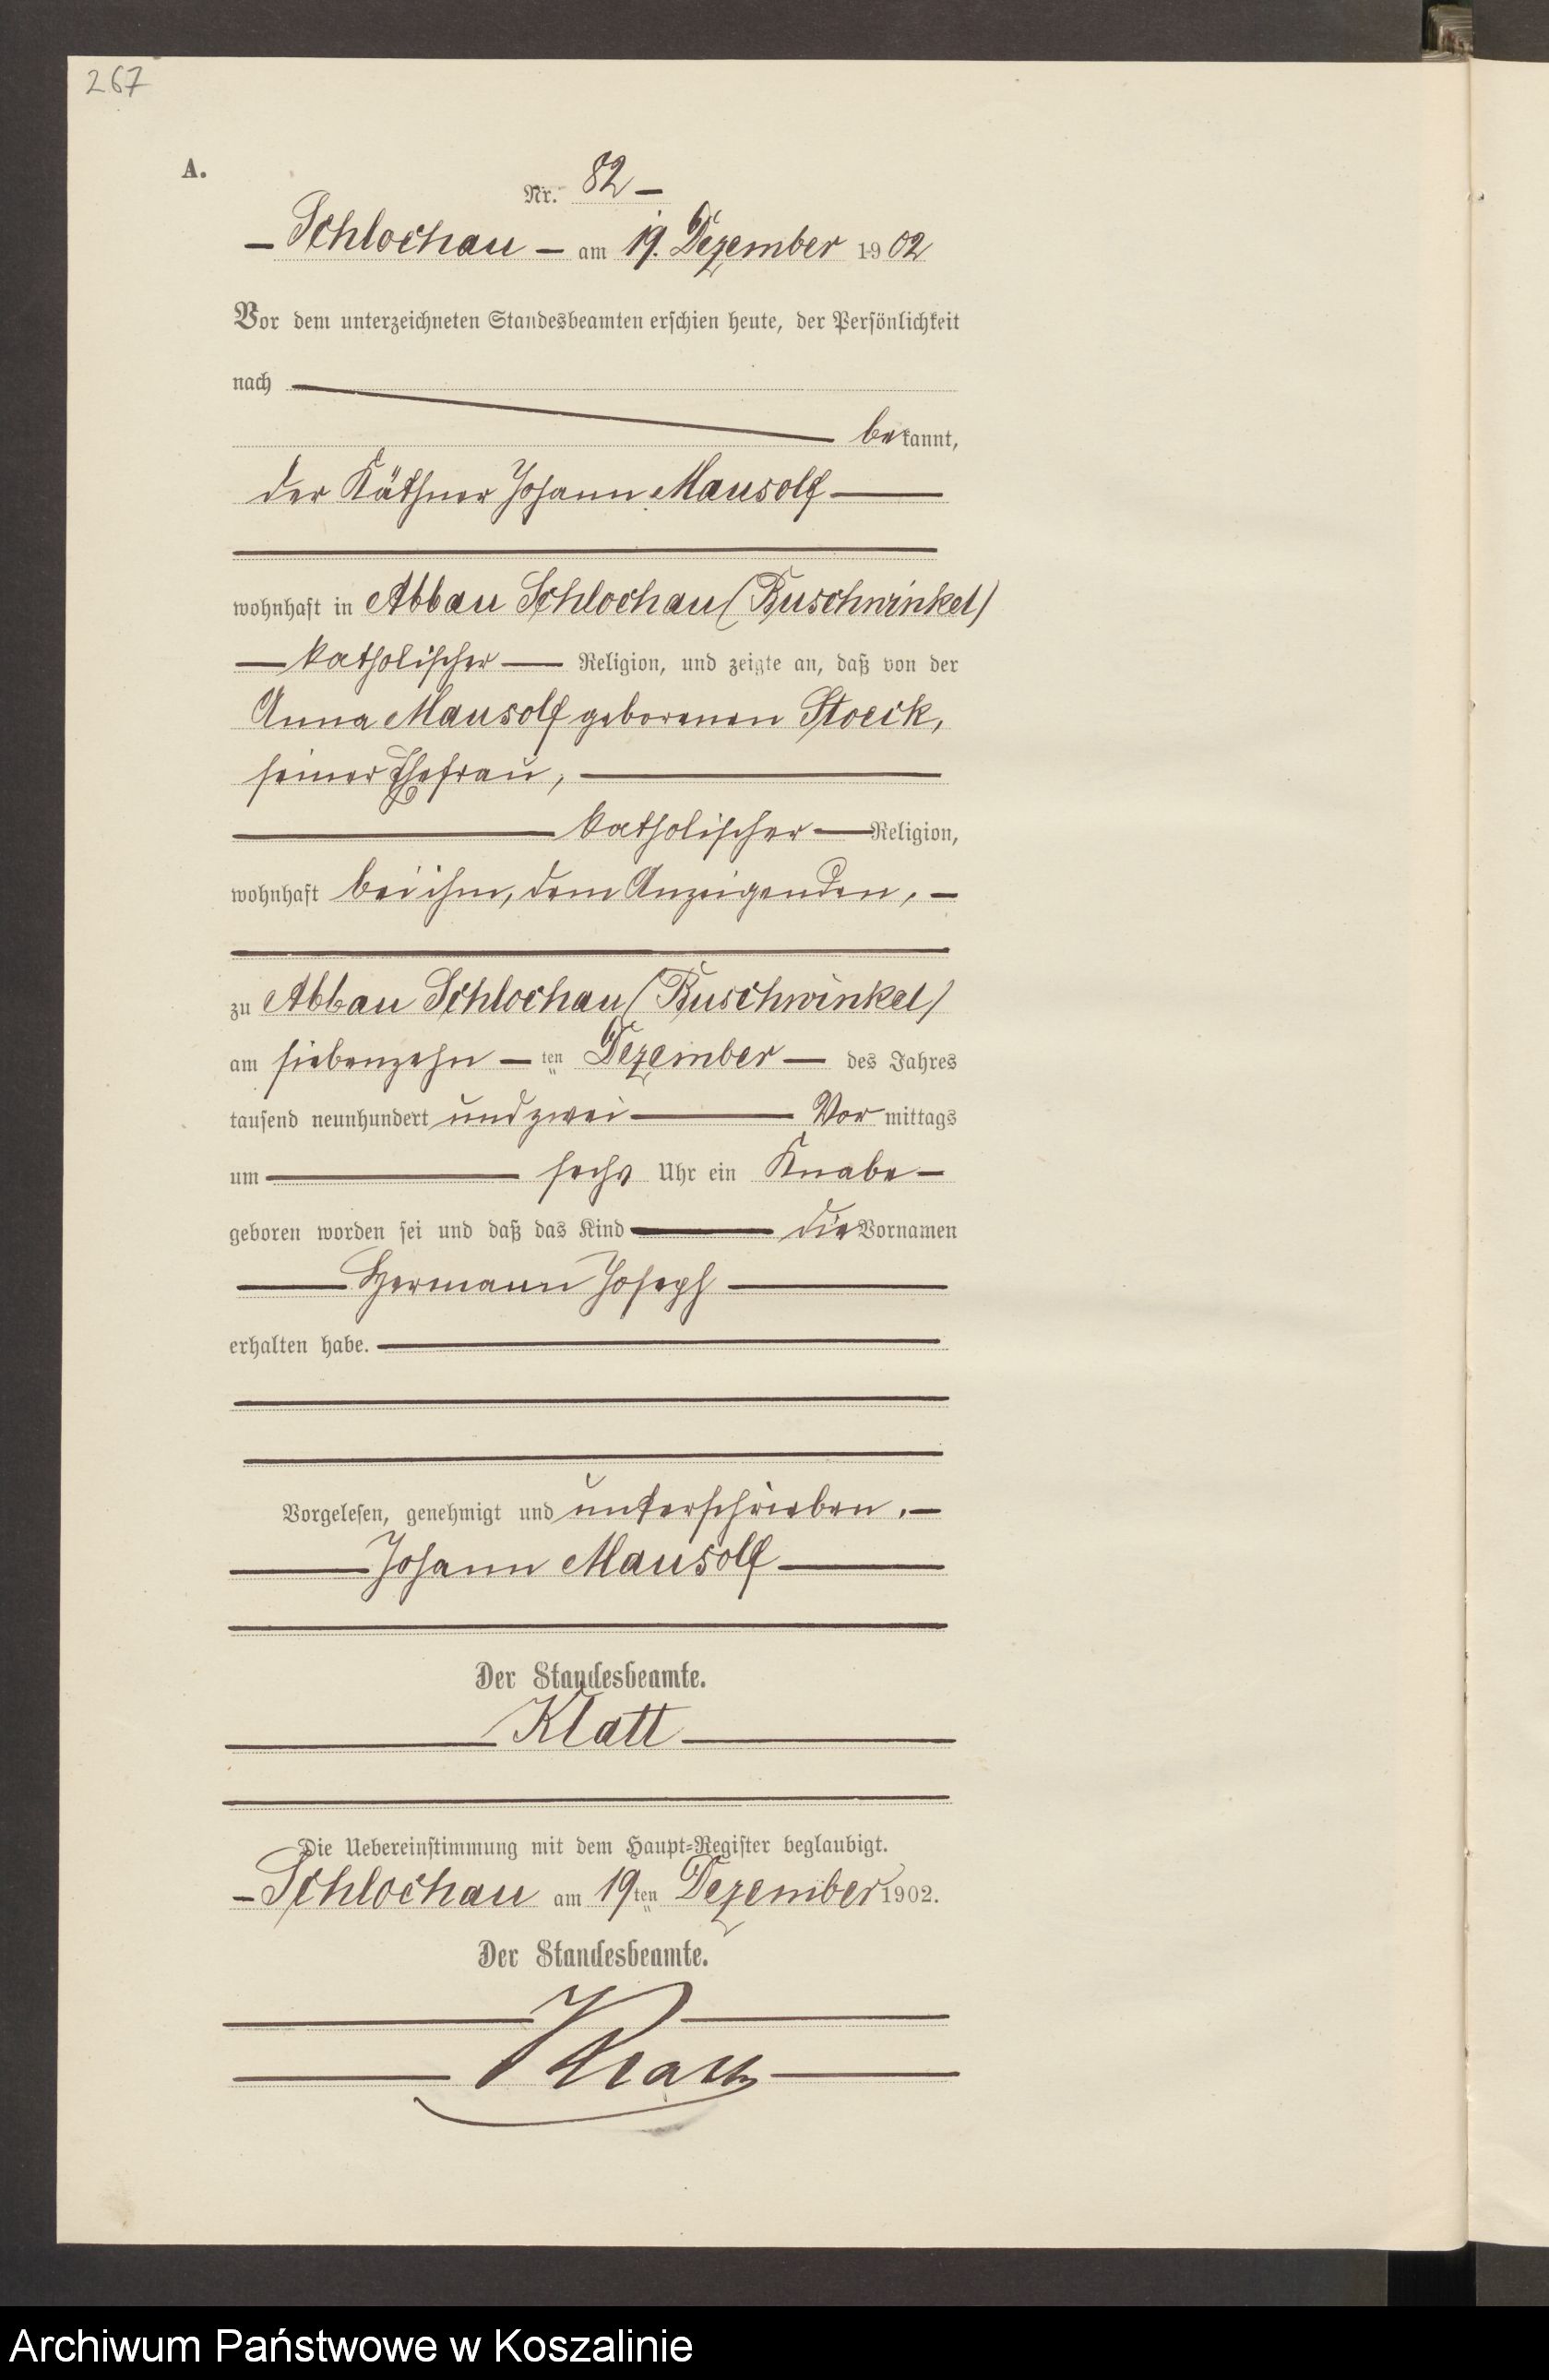 267
A.
Nr. 82 –
– Schlochau – am 19. Dezember 1902
Vor dem unterzeichneten Standesbeamten erschien heute, der Persönlichkeit
nach
bekannt,
der Käthner Johann Mausolf
wohnhaft in Abbau Schlochau (Buschwinkel)
katholischer Religion, und zeigte an, daß von der
Anna Mausolf geborenen Stoeck,
seiner Ehefrau,
katholischer Religion,
wohnhaft bei ihm, dem Anzeigenden, –
zu Abbau Schlochau (Buschwinkel)
am siebenzehn – ten Dezember – des Jahres
tausend neunhundert und zwei Vormittags
um sechs Uhr ein Knabe –
geboren worden sei und daß das Kind die Vornamen
Hermann Joseph
erhalten habe.
Vorgelesen, genehmigt und unterschrieben. –
Johann Mausolf
Der Standesbeamte.
Klatt
Die Uebereinstimmung mit dem Haupt-Register beglaubigt.
– Schlochau am 19ten Dezember 1902.
Der Standesbeamte.
Klatt
Archiwum Państwowe w Koszalinie